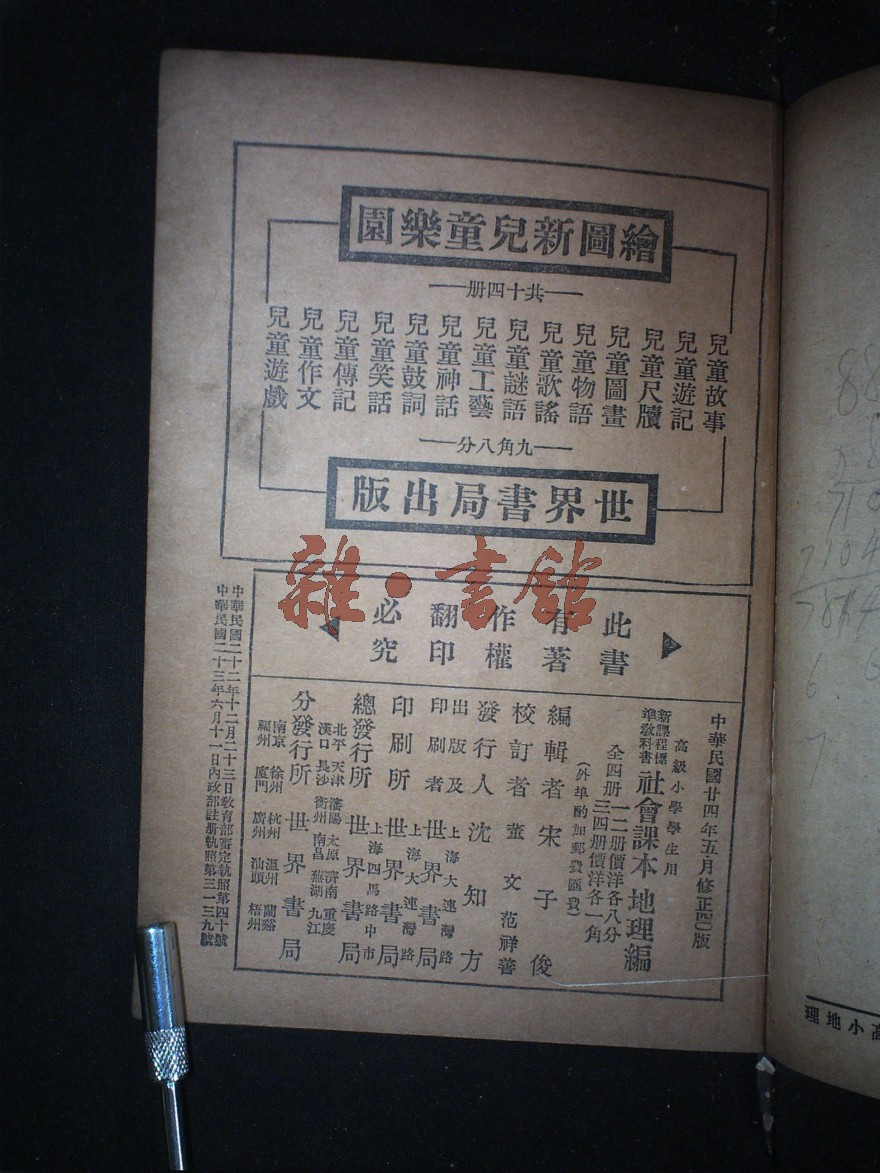 繪圖新兒童樂園
共十四册
兒童故事
兒童遊記
兒童尺牘
兒童圖畫
兒童物語
兒童歌謠
兒童謎語
兒童工藝
兒童神話
兒童鼓詞
兒童笑話
兒童傳記
兒童作文
兒童遊戲
九角八分
世界書局出版
雜·書館
此書
有著
作權
翻印
必究
中華民國廿四年五月修正四〇版
高級小學學生用
新課程標
準敎科書
社會課本地理編
全四册
一二册價洋各八分
三四册價洋各一角
(外埠酌加郵費匯費)
編輯者 宋子俊
校訂者 董文 范祥善
發行人 沈知方
出版及
印刷者
上海大連灣路
世界書局
印刷所
上海大連灣路
世界書局
總發行所
上海四馬路中市
世界書局
分發行所
北平 天津 瀋陽 太原 濟南 重慶
漢口 長沙 衡州 南昌 蕪湖 九江
世界書局
南京 徐州 杭州 溫州 蘭谿
福州 廈門 廣州 汕頭 梧州
中華民國二十二年十二月二十三日敎育部審定執照第四十號
中華民國二十三年六月十一日內政部註册執照第三一三九號
高小地理